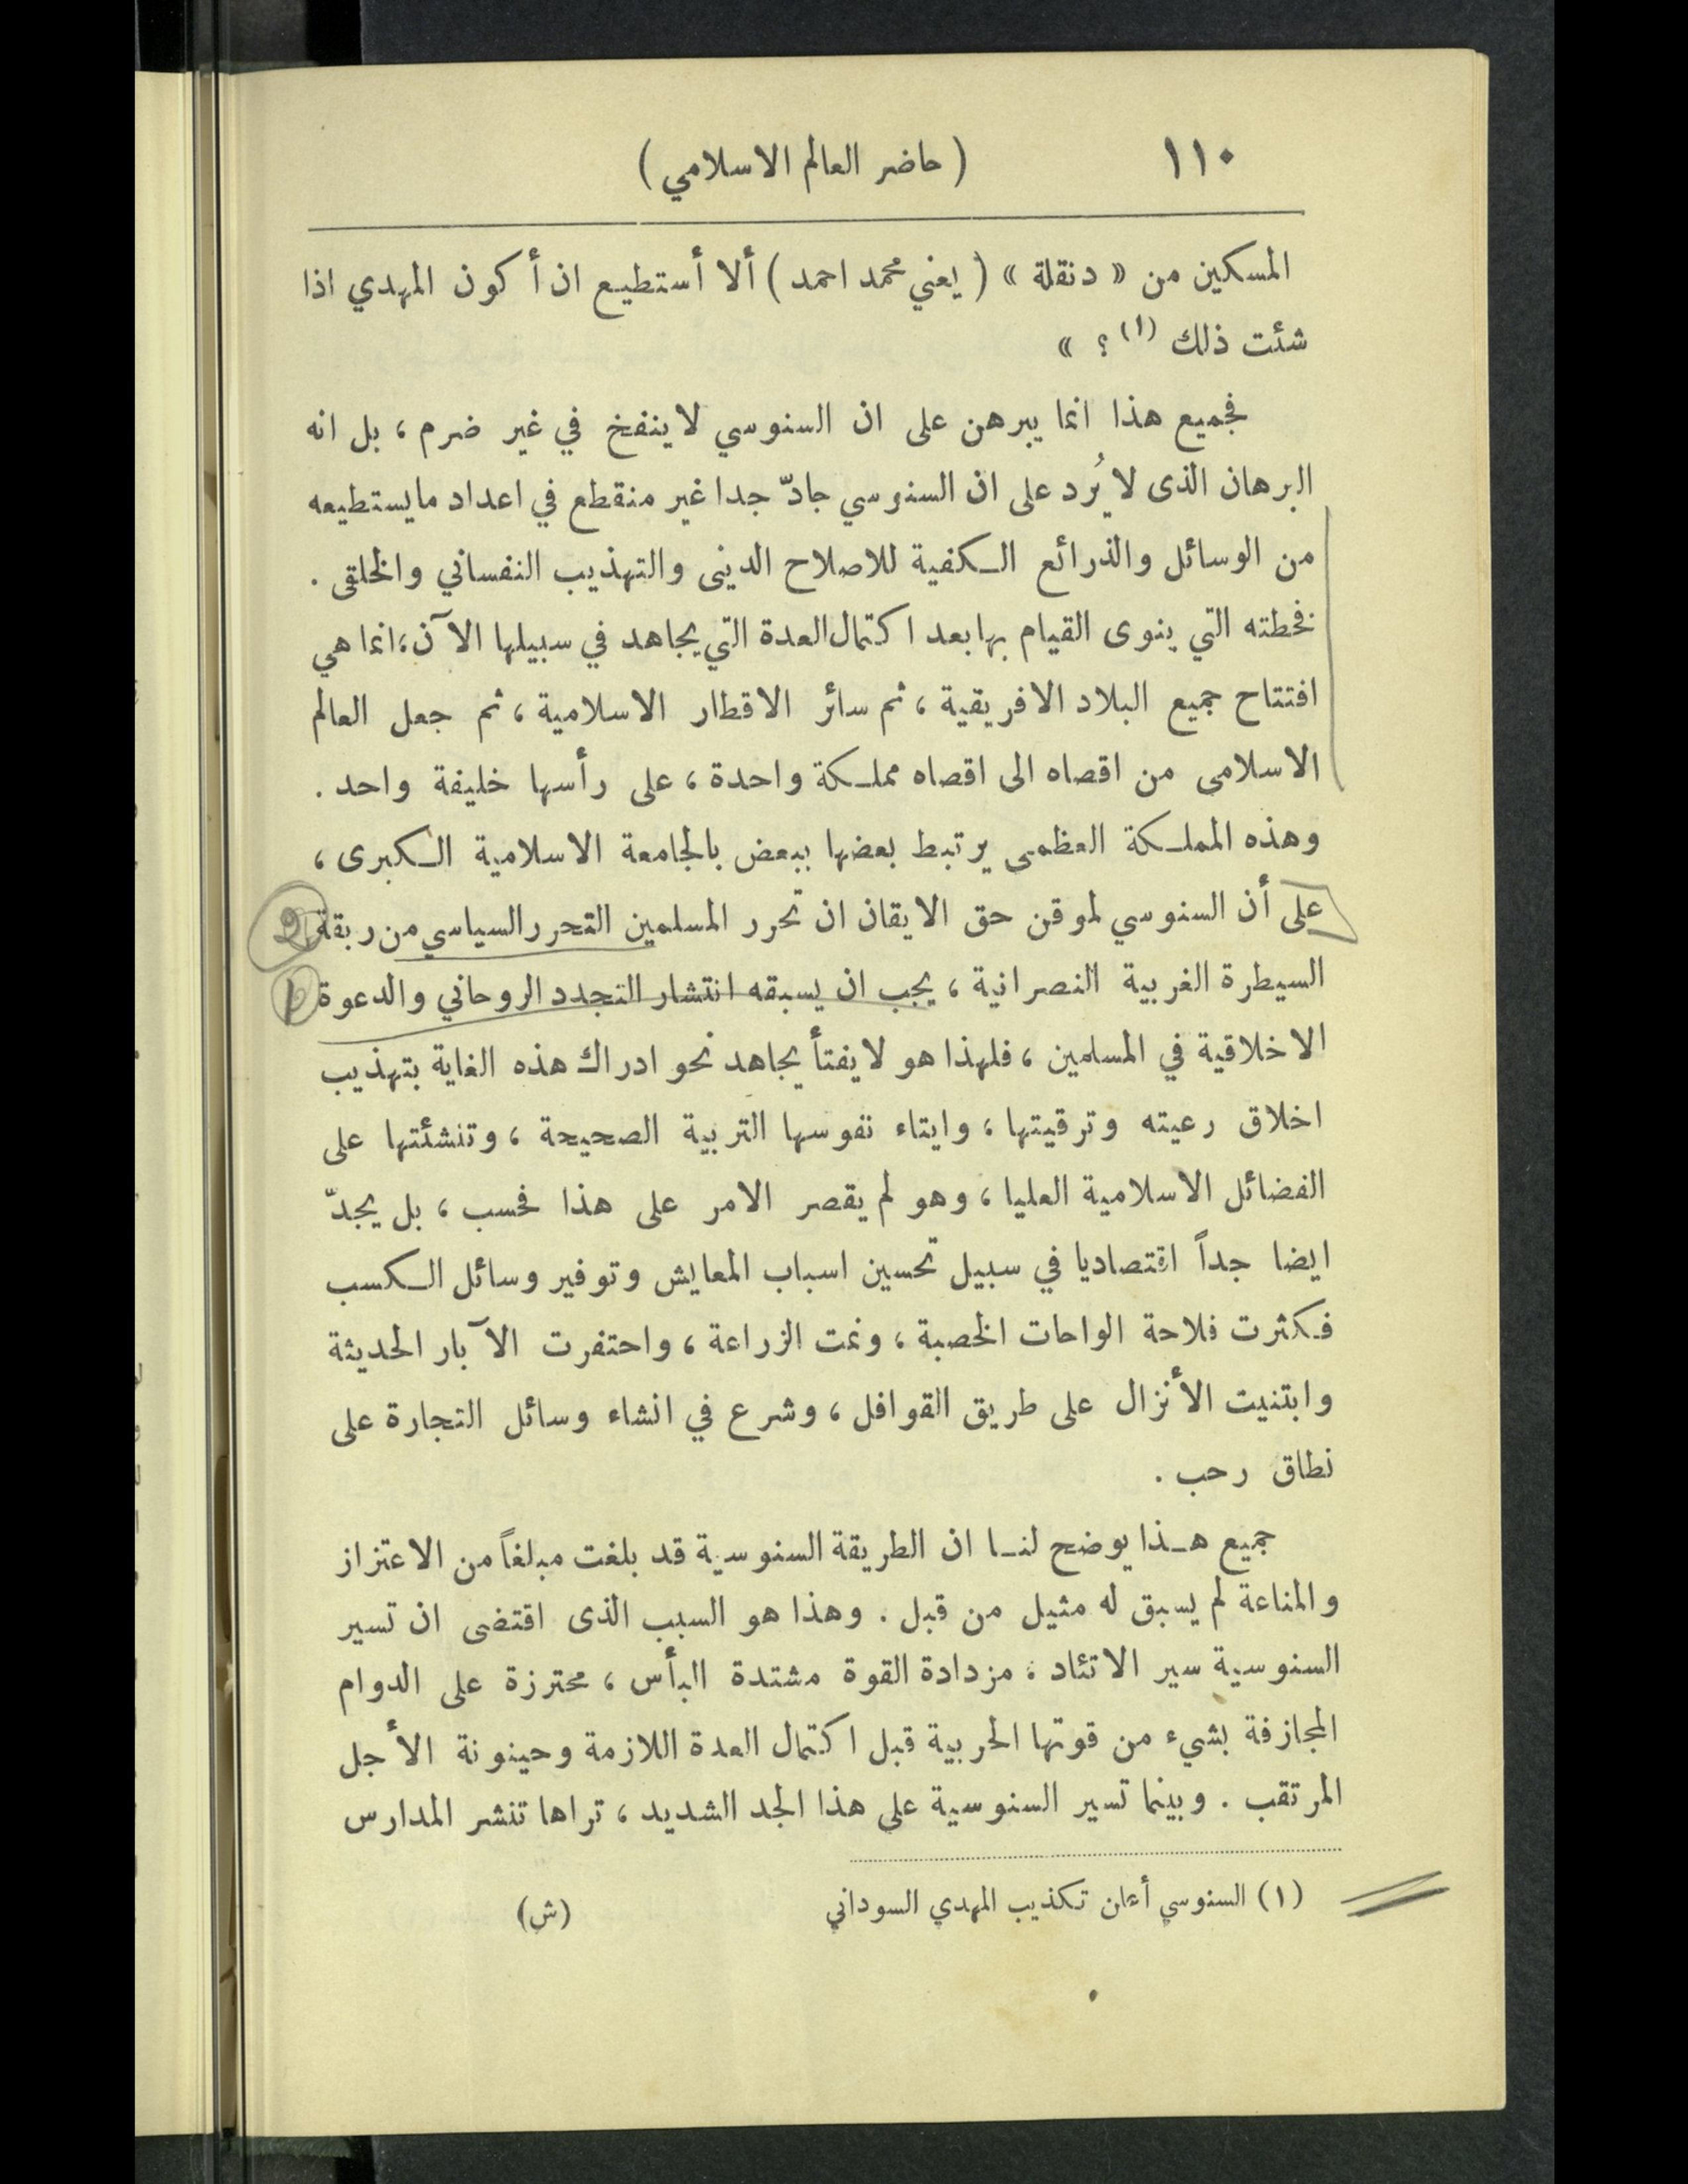 ١١٠
( حاضر العالم الاسلامي )
المسكين من « دنقلة » ( يعني محمد احمد ) ألا أستطيع ان أكون المهدي اذا
شئت ذلك (١) ؟ »
فجميع هذا انما يبرهن على ان السنوسي لا ينفخ في غير ضرم ، بل انه
البرهان الذى لا يُرد على ان السنوسي جادّ جدا غير منقطع في اعداد مايستطيعه
من الوسائل والذرائع الكفية للاصلاح الدينى والتهذيب النفساني والخلقى .
فخطته التي ينوى القيام بها بعد اكتمال العدة التي يجاهد في سبيلها الآن ، انما هي
افتتاح جميع البلاد الافريقية ، ثم سائر الاقطار الاسلامية ، ثم جعل العالم
الاسلامى من اقصاه الى اقصاه مملكة واحدة ، على رأسها خليفة واحد .
وهذه المملكة العظمى يرتبط بعضها ببعض بالجامعة الاسلامية الكبرى ،
على أن السنوسي لموقن حق الايقان ان تحرر المسلمين التحرر السياسي من ربقة
السيطرة الغربية النصرانية ، يجب ان يسبقه انتشار التجدد الروحاني والدعوة
الاخلاقية في المسلمين ، فلهذا هو لا يفتأ يجاهد نحو ادراك هذه الغاية بتهذيب
اخلاق رعيته وترقيتها ، وايتاء نفوسها التربية الصحيحة ، وتنشئتها على
الفضائل الاسلامية العليا ، وهو لم يقصر الامر على هذا فحسب ، بل يجدّ
ايضا جداً اقتصاديا في سبيل تحسين اسباب المعايش وتوفير وسائل الكسب
فكثرت فلاحة الواحات الخصبة ، ونمت الزراعة ، واحتفرت الآبار الحديثة
وابتنيت الأنزال على طريق القوافل ، وشرع في انشاء وسائل التجارة على
نطاق رحب .
جميع هذا يوضح لنا ان الطريقة السنوسية قد بلغت مبلغاً من الاعتزاز
والمناعة لم يسبق له مثيل من قبل . وهذا هو السبب الذى اقتضى ان تسير
السنوسية سير الاتئاد ، مزدادة القوة مشتدة البأس ، محترزة على الدوام
المجازفة بشيء من قوتها الحربية قبل اكتمال العدة اللازمة وحينونة الأجل
المرتقب . وبينما تسير السنوسية على هذا الجد الشديد ، تراها تنشر المدارس
(١) السنوسي أعلن تكذيب المهدي السوداني (ش)